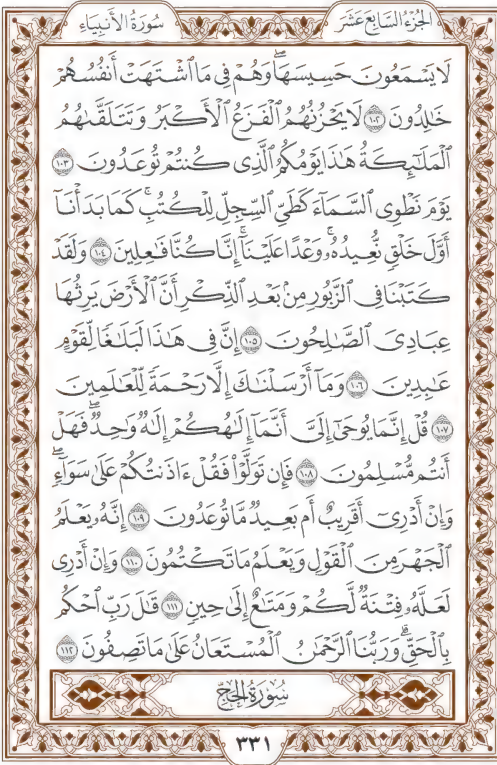 الجُزْءُ السَّابِعَ عَشَرَ
سُورَةُ الأَنبِيَاءِ
لَا يَسْمَعُونَ حَسِيسَهَاۖ وَهُمْ فِى مَا ٱشْتَهَتْ أَنفُسُهُمْ
خَٰلِدُونَ ١٠٢ لَا يَحْزُنُهُمُ ٱلْفَزَعُ ٱلْأَكْبَرُ وَتَتَلَقَّىٰهُمُ
ٱلْمَلَٰٓئِكَةُ هَٰذَا يَوْمُكُمُ ٱلَّذِى كُنتُمْ تُوعَدُونَ ١٠٣
يَوْمَ نَطْوِى ٱلسَّمَآءَ كَطَىِّ ٱلسِّجِلِّ لِلْكُتُبِۚ كَمَا بَدَأْنَآ
أَوَّلَ خَلْقٍ نُّعِيدُهُۥۚ وَعْدًا عَلَيْنَآۚ إِنَّا كُنَّا فَٰعِلِينَ ١٠٤ وَلَقَدْ
كَتَبْنَا فِى ٱلزَّبُورِ مِنۢ بَعْدِ ٱلذِّكْرِ أَنَّ ٱلْأَرْضَ يَرِثُهَا
عِبَادِىَ ٱلصَّٰلِحُونَ ١٠٥ إِنَّ فِى هَٰذَا لَبَلَٰغًا لِّقَوْمٍ
عَٰبِدِينَ ١٠٦ وَمَآ أَرْسَلْنَٰكَ إِلَّا رَحْمَةً لِّلْعَٰلَمِينَ
١٠٧ قُلْ إِنَّمَا يُوحَىٰٓ إِلَىَّ أَنَّمَآ إِلَٰهُكُمْ إِلَٰهٌ وَٰحِدٌۖ فَهَلْ
أَنتُم مُّسْلِمُونَ ١٠٨ فَإِن تَوَلَّوْا۟ فَقُلْ ءَاذَنتُكُمْ عَلَىٰ سَوَآءٍۖ
وَإِنْ أَدْرِىٓ أَقَرِيبٌ أَم بَعِيدٌ مَّا تُوعَدُونَ ١٠٩ إِنَّهُۥ يَعْلَمُ
ٱلْجَهْرَ مِنَ ٱلْقَوْلِ وَيَعْلَمُ مَا تَكْتُمُونَ ١١٠ وَإِنْ أَدْرِى
لَعَلَّهُۥ فِتْنَةٌ لَّكُمْ وَمَتَٰعٌ إِلَىٰ حِينٍ ١١١ قَٰلَ رَبِّ ٱحْكُم
بِٱلْحَقِّۗ وَرَبُّنَا ٱلرَّحْمَٰنُ ٱلْمُسْتَعَانُ عَلَىٰ مَا تَصِفُونَ ١١٢
سُورَةُ الحَجِّ
٣٣١